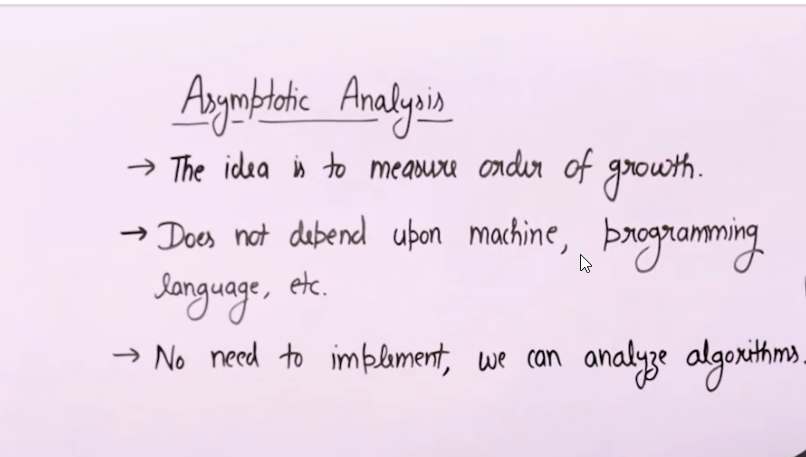 Asymptotic Analysis
→ The idea is to measure order of growth.
→ Does not depend upon machine, programming
language, etc.
→ No need to implement, we can analyze algorithms.